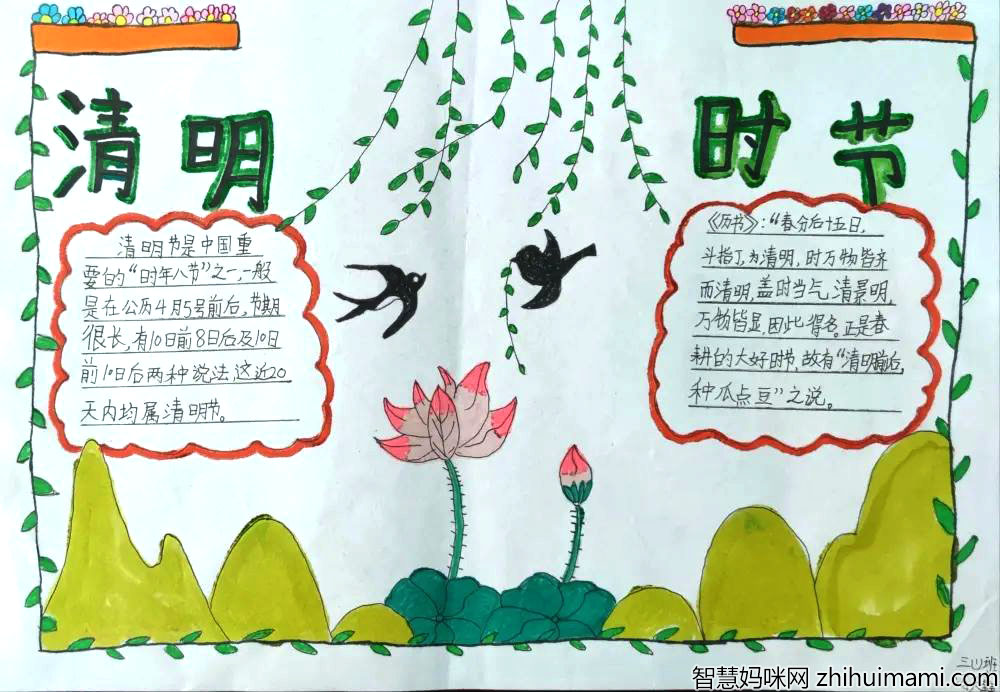 清明
时节
清明节是中国重
要的“时年八节”之一,一般
是在公历4月5号前后,节期
很长,有10日前8日后及10日
前10日后两种说法,这近20
天内均属清明节。
《历书》:“春分后十五日,
斗指丁,为清明,时万物皆齐
而清明,盖时当气清景明,
万物皆显,因此得名。正是春
耕的大好时节,故有“清明前后,
种瓜点豆”之说。
三(1)班
智慧妈咪网 zhihuimami.com